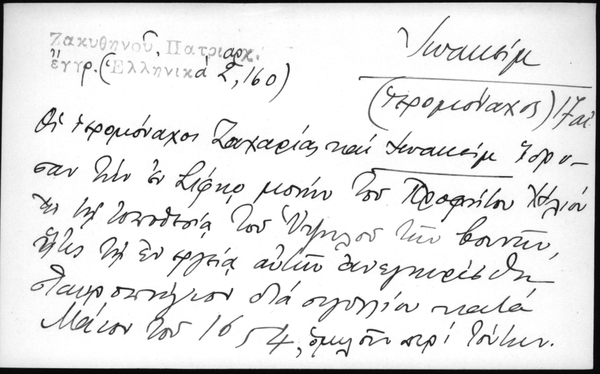 Ζακυθηνοῦ, Πατριαρχ.
ἔγγρ. (Ἑλληνικά 2, 160)
Ἰωακείμ
(ἱερομόναχος) 17 αἰ
Οἱ ἱερομόναχοι Ζαχαρίας καί Ἰωακείμ ἵδρυ-
σαν τήν ἐν Σίφνῳ μονήν τοῦ Προφήτου Ἠλιού
ἐν τῇ τοποθεσίᾳ τοῦ Ὑψηλοῦ τήν βουνήν,
ἥτις τῇ ἐνεργείᾳ αὐτῶν ἀνεγνωρίσθη
σταυροπήγιον διά σιγιλλίου κατά
Μάϊον τοῦ 1654, περί τούτων.